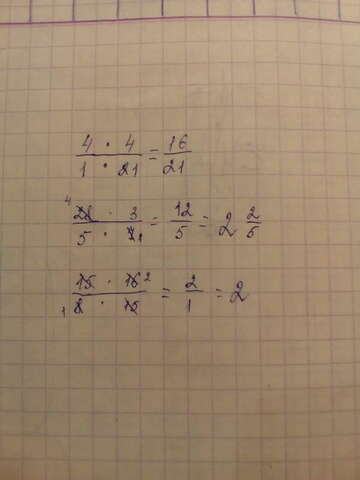 4 · 4 / 1 · 21 = 16 / 21
4 28 · 3 / 5 · 7 1 = 12 / 5 = 2 2/5
15 · 16 2 / 1 8 · 15 = 2 / 1 = 2